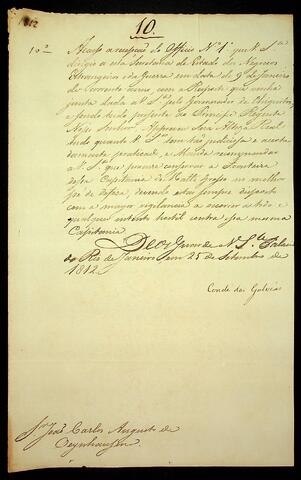 1812
10.
10.ª Accuso a recepção do Officio Nº 4º que V. Sª
dirigio a esta Secretaria de Estado dos Negocios
Estrangeiros e da Guerra em data de 9 de Janeiro
do Corrente anno com a Resposta que vinha
junta dada a V. Sª pelo Governador de Chiquitos,
e sendo tudo presente ao Principe Regente
Nosso Senhor, Approvou Sua Alteza Real
tudo quanto V. Sª tem tão judiciosa e acerta-
damente praticado, e Manda recommendar
a V. Sª que procure conservar a Fronteira
dessa Capitania de Matto Grosso no melhor
pé de defeza, devendo estar sempre disposto
com a mayor vigilancia a occorrer a todo e
qualquer intento hostil contra essa mesma
Capitania
Deos Guarde a V. Sª Palacio
do Rio de Janeiro em 25 de Setembro de
1812.
Conde das Galveas
Snr João Carlos Augusto de
Oeynhausen